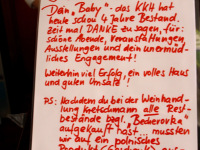 Dein „Baby“. das KKH hat
heute schon 4 Jahre Bestand.
Zeit mal DANKE zu sagen, für:
schöne Abende, Veranstaltungen
Ausstellungen und dein unermüd-
liches Engagement!
Weiterhin viel Erfolg, ein volles Haus
und guten Umsatz!
PS: Nachdem du bei der Weinhand-
lung Kretschmann alle Rest-
bestände bzgl. „Becherovka“
aufgekauft hast, mussten
wir auf ein polnisches